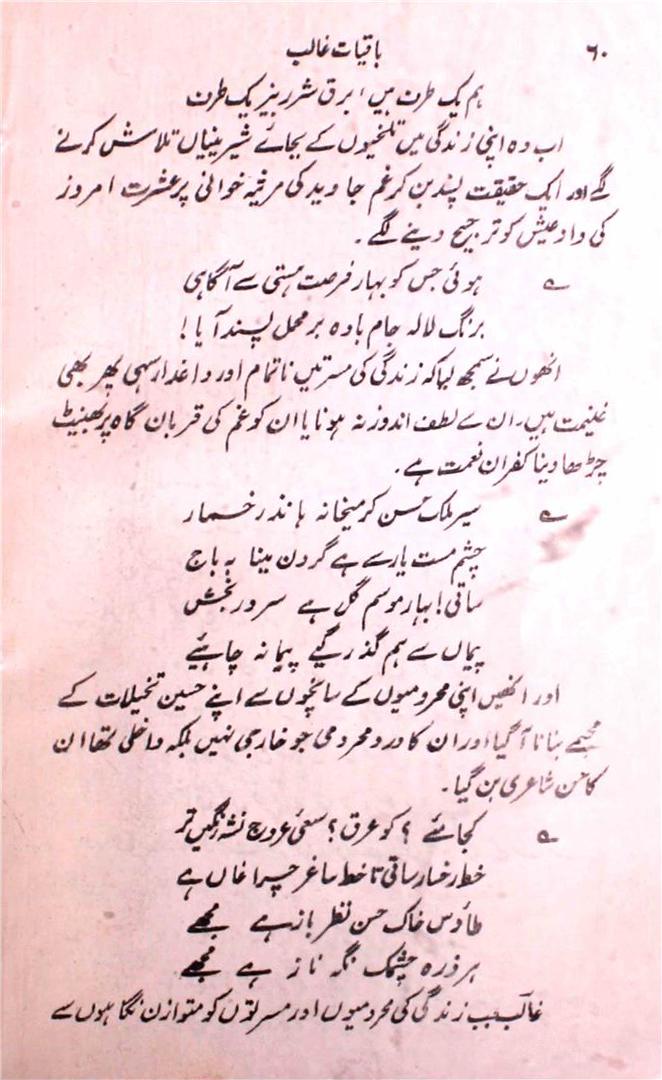 ۶۰ باقیات غالب
ہم یک طرف ہیں، برق شرر بیز یک طرف
اب وہ اپنی زندگی میں تلخیوں کے بجائے شیرینیاں تلاش کرنے
لگے اور ایک حقیقت پسند بن کر غم جاوید کی مرثیہ خوانی پر عشرت امروز
کی داد عیش کو ترجیح دینے لگے۔
ہوئی جس کو بہار فرصت ہستی سے آگاہی
برنگ لالہ جام بادہ بر محمل پسند آیا!
انھوں نے سمجھ لیا کہ زندگی کی مسرتیں ناتمام اور داغدار سہی پھر بھی
غنیمت ہیں۔ ان سے لطف اندوز نہ ہونا یا ان کو غم کی قربان گاہ پر بھینٹ
چڑھا دینا کفران نعمت ہے۔
سیر ملک حسن کر میخانہ ہا نذر خمار
چشم مست یار سے ہے گردن مینا پہ باج
ساقی! بہار موسم گل ہے سرور بخش
پیماں سے ہم گذر گیے پیمانہ چاہئیے
اور انھیں اپنی محرومیوں کے سانچوں سے اپنے حسین تخیلات کے
مجسمے بنانا آ گیا اور ان کا درد محرومی جو خارجی نہیں بلکہ داخلی تھا ان
کا حسن شاعری بن گیا۔
کجائے؟ کو عرق؟ سعئ عروج نشہ رنگیں تر
خط رخسار ساقی تا خط ساغر چراغاں ہے
طاؤس خاک حسن نظر باز ہے مجھے
ہر ذرہ چشمک نگہ ناز ہے مجھے
غالب جب زندگی کی محرومیوں اور مسرتوں کو متوازن نگاہوں سے